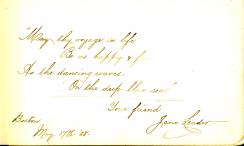 "May thy voyage in life
Be as happy &
As the dancing waves
On the deep blue sea"
Your friend
Boston
May 17th '88.